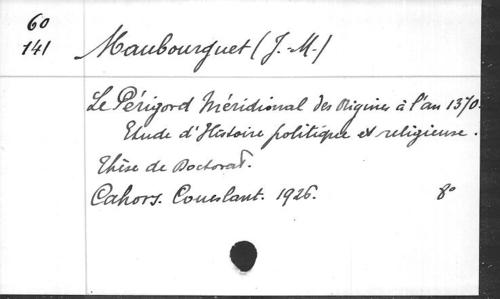 60
141
Maubourguet (J.-M.)
Le Périgord Méridional des Origines à l'an 1370.
Etude d'Histoire politique et religieuse.
Thèse de Doctorat.
Cahors. Coueslant. 1926. 8°